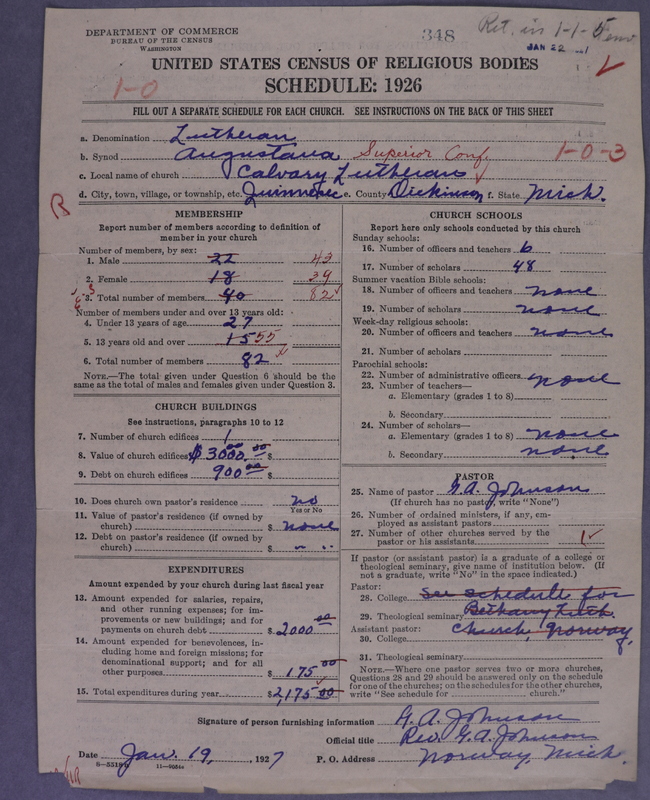 DEPARTMENT OF COMMERCE
BUREAU OF THE CENSUS
WASHINGTON
348
Ret. in 1-1-5
JAN 22
UNITED STATES CENSUS OF RELIGIOUS BODIES
SCHEDULE: 1926
1-0
FILL OUT A SEPARATE SCHEDULE FOR EACH CHURCH. SEE INSTRUCTIONS ON THE BACK OF THIS SHEET
a. Denomination Lutheran
b. Synod Augustana Superior Conf. 1-0-3
c. Local name of church Calvary Lutheran
d. City, town, village, or township, etc. Quinnesec e. County Dickinson f. State Mich.
B
MEMBERSHIP
Report number of members according to definition of member in your church
Number of members, by sex:
1. Male 22 43
2. Female 18 39
3. Total number of members 40 82
Number of members under and over 13 years old:
4. Under 13 years of age 27
5. 13 years old and over 15 55
6. Total number of members 82
NOTE.—The total given under Question 6 should be the
same as the total of males and females given under Question 3.
CHURCH BUILDINGS
See instructions, paragraphs 10 to 12
7. Number of church edifices 1
8. Value of church edifices $3000.00 $
9. Debt on church edifices 900.00 $
10. Does church own pastor's residence no
Yes or No
11. Value of pastor's residence (if owned by
church) $ none
12. Debt on pastor's residence (if owned by
church) $ " "
EXPENDITURES
Amount expended by your church during last fiscal year
13. Amount expended for salaries, repairs,
and other running expenses; for im-
provements or new buildings; and for
payments on church debt $2000.00
14. Amount expended for benevolences, in-
cluding home and foreign missions; for
denominational support; and for all
other purposes $ 175.00
15. Total expenditures during year $2,175.00
CHURCH SCHOOLS
Report here only schools conducted by this church
Sunday schools:
16. Number of officers and teachers 6
17. Number of scholars 48
Summer vacation Bible schools:
18. Number of officers and teachers none
19. Number of scholars none
Week-day religious schools:
20. Number of officers and teachers none
21. Number of scholars
Parochial schools:
22. Number of administrative officers none
23. Number of teachers—
a. Elementary (grades 1 to 8)
b. Secondary
24. Number of scholars—
a. Elementary (grades 1 to 8) none
b. Secondary none
PASTOR
25. Name of pastor G. A. Johnson
(If church has no pastor, write "None")
26. Number of ordained ministers, if any, em-
ployed as assistant pastors
27. Number of other churches served by the
pastor or his assistants 1
If pastor (or assistant pastor) is a graduate of a college or
theological seminary, give name of institution below. (If
not a graduate, write "No" in the space indicated.)
Pastor:
28. College See schedule for
29. Theological seminary Bethany Luth.
Assistant pastor: Church, Norway,
30. College
31. Theological seminary
NOTE.—Where one pastor serves two or more churches,
Questions 28 and 29 should be answered only on the schedule
for one of the churches; on the schedules for the other churches,
write "See schedule for church."
Signature of person furnishing information G. A. Johnson
Official title Rev. G. A. Johnson
Date Jan. 19, 1927 P. O. Address Norway, Mich.